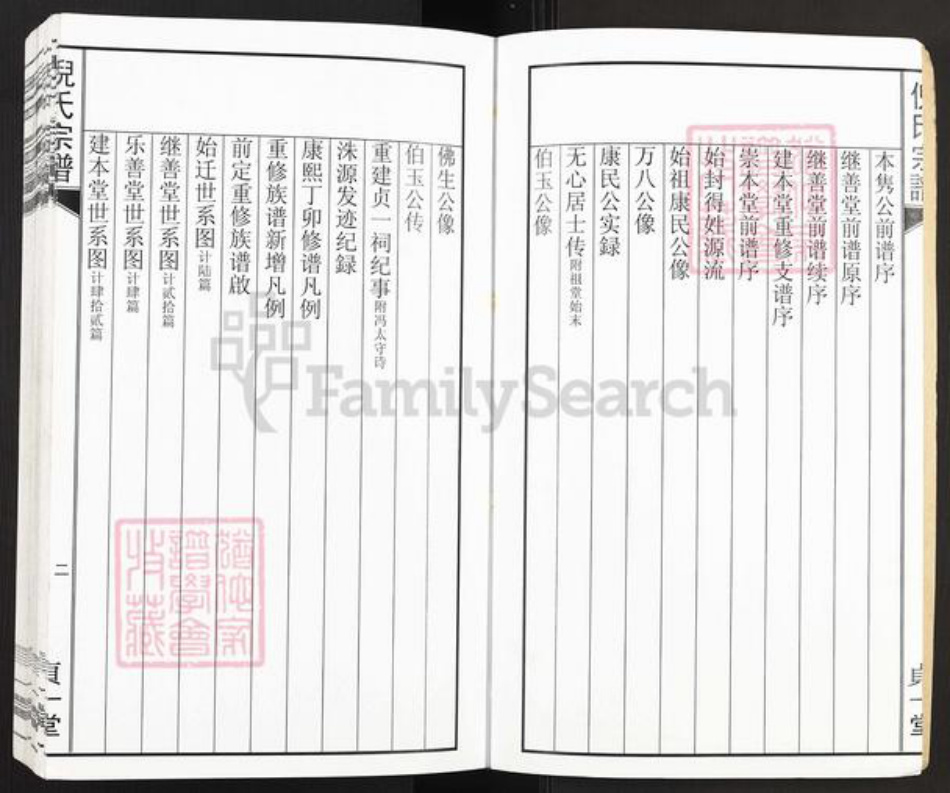 倪氏宗譜
本隽公前谱序
继善堂前谱原序
继善堂前谱续序
建本堂重修支谱序
崇本堂前谱序
始封得姓源流
始祖康民公像
万八公像
康民公实録
无心居士传附祖堂始末
伯玉公像
貞一堂
佛生公像
伯玉公传
重建贞一祠纪事附冯太守诗
洙源发迹纪録
康熙丁卯修谱凡例
重修族谱新增凡例
前定重修族谱啟
始迁世系图计陆篇
继善堂世系图计贰拾篇
乐善堂世系图计肆篇
建本堂世系图计肆拾贰篇
倪氏宗譜
二
貞一堂
FamilySearch
譜學會
收藏